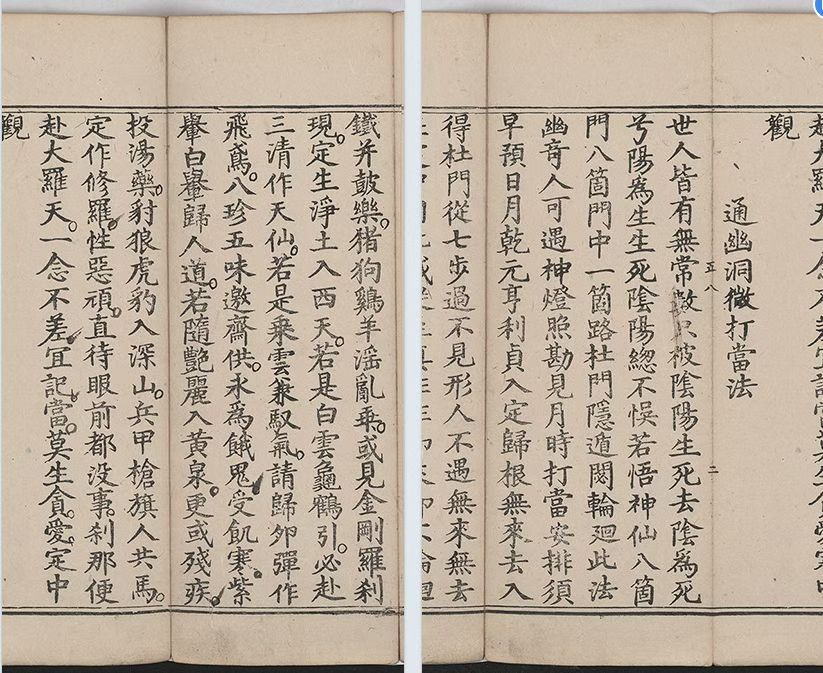 鐵并皷樂。猪狗鷄羊滛亂乗。或見金剛羅刹
現。定生淨土入西天。若是白雲龜鶴引。必赴
三清作天仙。若是乗雲兼馭氣。請歸卵彈作
飛鳶。八珍五味邀齋供。永爲餓鬼受飢寒。紫
轝白轝歸人道。若隨艷麗入黃泉。更或殘疾。
投湯藥。豺狼虎豹入深山。兵甲槍旗人共馬。
定作修羅。性惡頑。直待眼前都没事。刹那便
赴大羅天。一念不差。宜記當。莫生貪愛。定中
觀
觀
通幽洞微打當法
五八
二
世人皆有無常數只被陰陽生死去陰爲死
兮陽爲生生死陰陽緫不悮若悟神仙八箇
門八箇門中一箇路杜門隱遁閟輪廻此法
幽竒人可遇神燈照勘見月時打當安排須
早預日月乾元亨利貞入定歸根無來去入
得杜門從七步過不見形人不遇無來無去